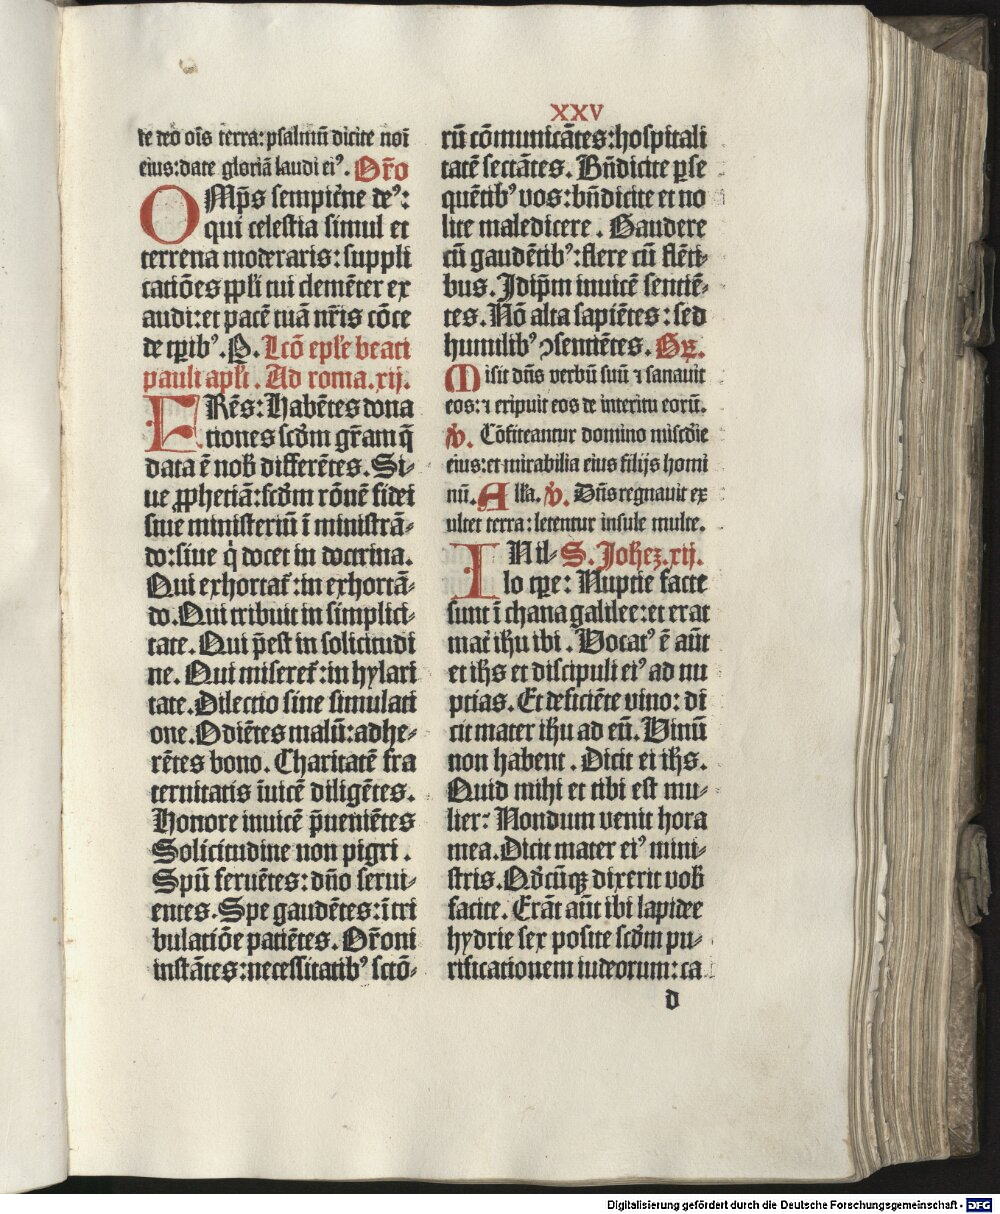 XXV
te deo oīs terra: psalmū dicite noī
eius: date gloriā laudi eiꝰ. Or̄o
OMp̄s sempit̄ne deꝰ:
qui celestia simul et
terrena moderaris: suppli
catiōes ppl̄i tui clemēter ex
audi: et pacē tuā nr̄is cōce
de tp̄ibꝰ. P. Lcō epl̄e beati
pauli apl̄i. Ad roma. xij.
FRēs: Habētes dona
tiones scd̄m gr̄am q̄
data ē nob̄ differētes. Si⸗
ue ꝓpheciā: scd̄m rōnē fidei
siue ministeriū ī ministrā⸗
do: siue q̇ docet in doctrina.
Qui exhortat̄: in exhortā⸗
do. Qui tribuit in simplici⸗
tate. Qui p̄est in solicitudi
ne. Qui miseret̄: in hylari
tate. Dilectio sine simulati
one. Odiētes malū: adhe⸗
rētes bono. Charitatē fra
ternitatis īuicē diligētes.
Honore inuicē p̄ueniētes
Solicitudine non pigri.
Spū feruētes: dn̄o serui⸗
entes. Spe gaudētes: ī tri
bulatiōe patiētes. Or̄oni
instātes: necessitatibꝰ sctō⸗
rū cōmunicātes: hospitali
tatē sectātes. Bn̄dicite ꝑse
quētibꝰ vos: bn̄dicite et no
lite maledicere. Gaudere
cū gaudētibꝰ: flere cū flēti⸗
bus. Idip̄m inuicē sentiē⸗
tes. Nō alta sapiētes: sed
humilibꝰ ↄsentiētes. Gr̄.
Misit dn̄s verbū suū ⁊ sanauit
eos: ⁊ eripuit eos de interitu eorū.
V̄. Cōfiteantur domino miscd̄ie
eius: et mirabilia eius filijs homi
nū. All̄a. V̄. Dn̄s regnauit ex
ultet terra: letentur insule multe.
INil⸗ S. Joħez. xij.
lo tp̄e: Nuptie facte
sunt ī chana galilee: et erat
mat̄ ih̄u ibi. Vocatꝰ ē aūt
et ih̄s et discipuli eiꝰ ad nu
ptias. Et deficiēte vino: di
cit mater ih̄u ad eū. Vinū
non habent. Dicit ei ih̄s.
Quid mihi et tibi est mu⸗
lier: Nondum venit hora
mea. Dicit mater eiꝰ mini⸗
stris. Qd̄cūqꝫ dixerit vob̄
facite. Erāt aūt ibi lapidee
hydrie sex posite scd̄m pu⸗
rificationem iudeorum: ca
d
Digitalisierung gefördert durch die Deutsche Forschungsgemeinschaft - DFG